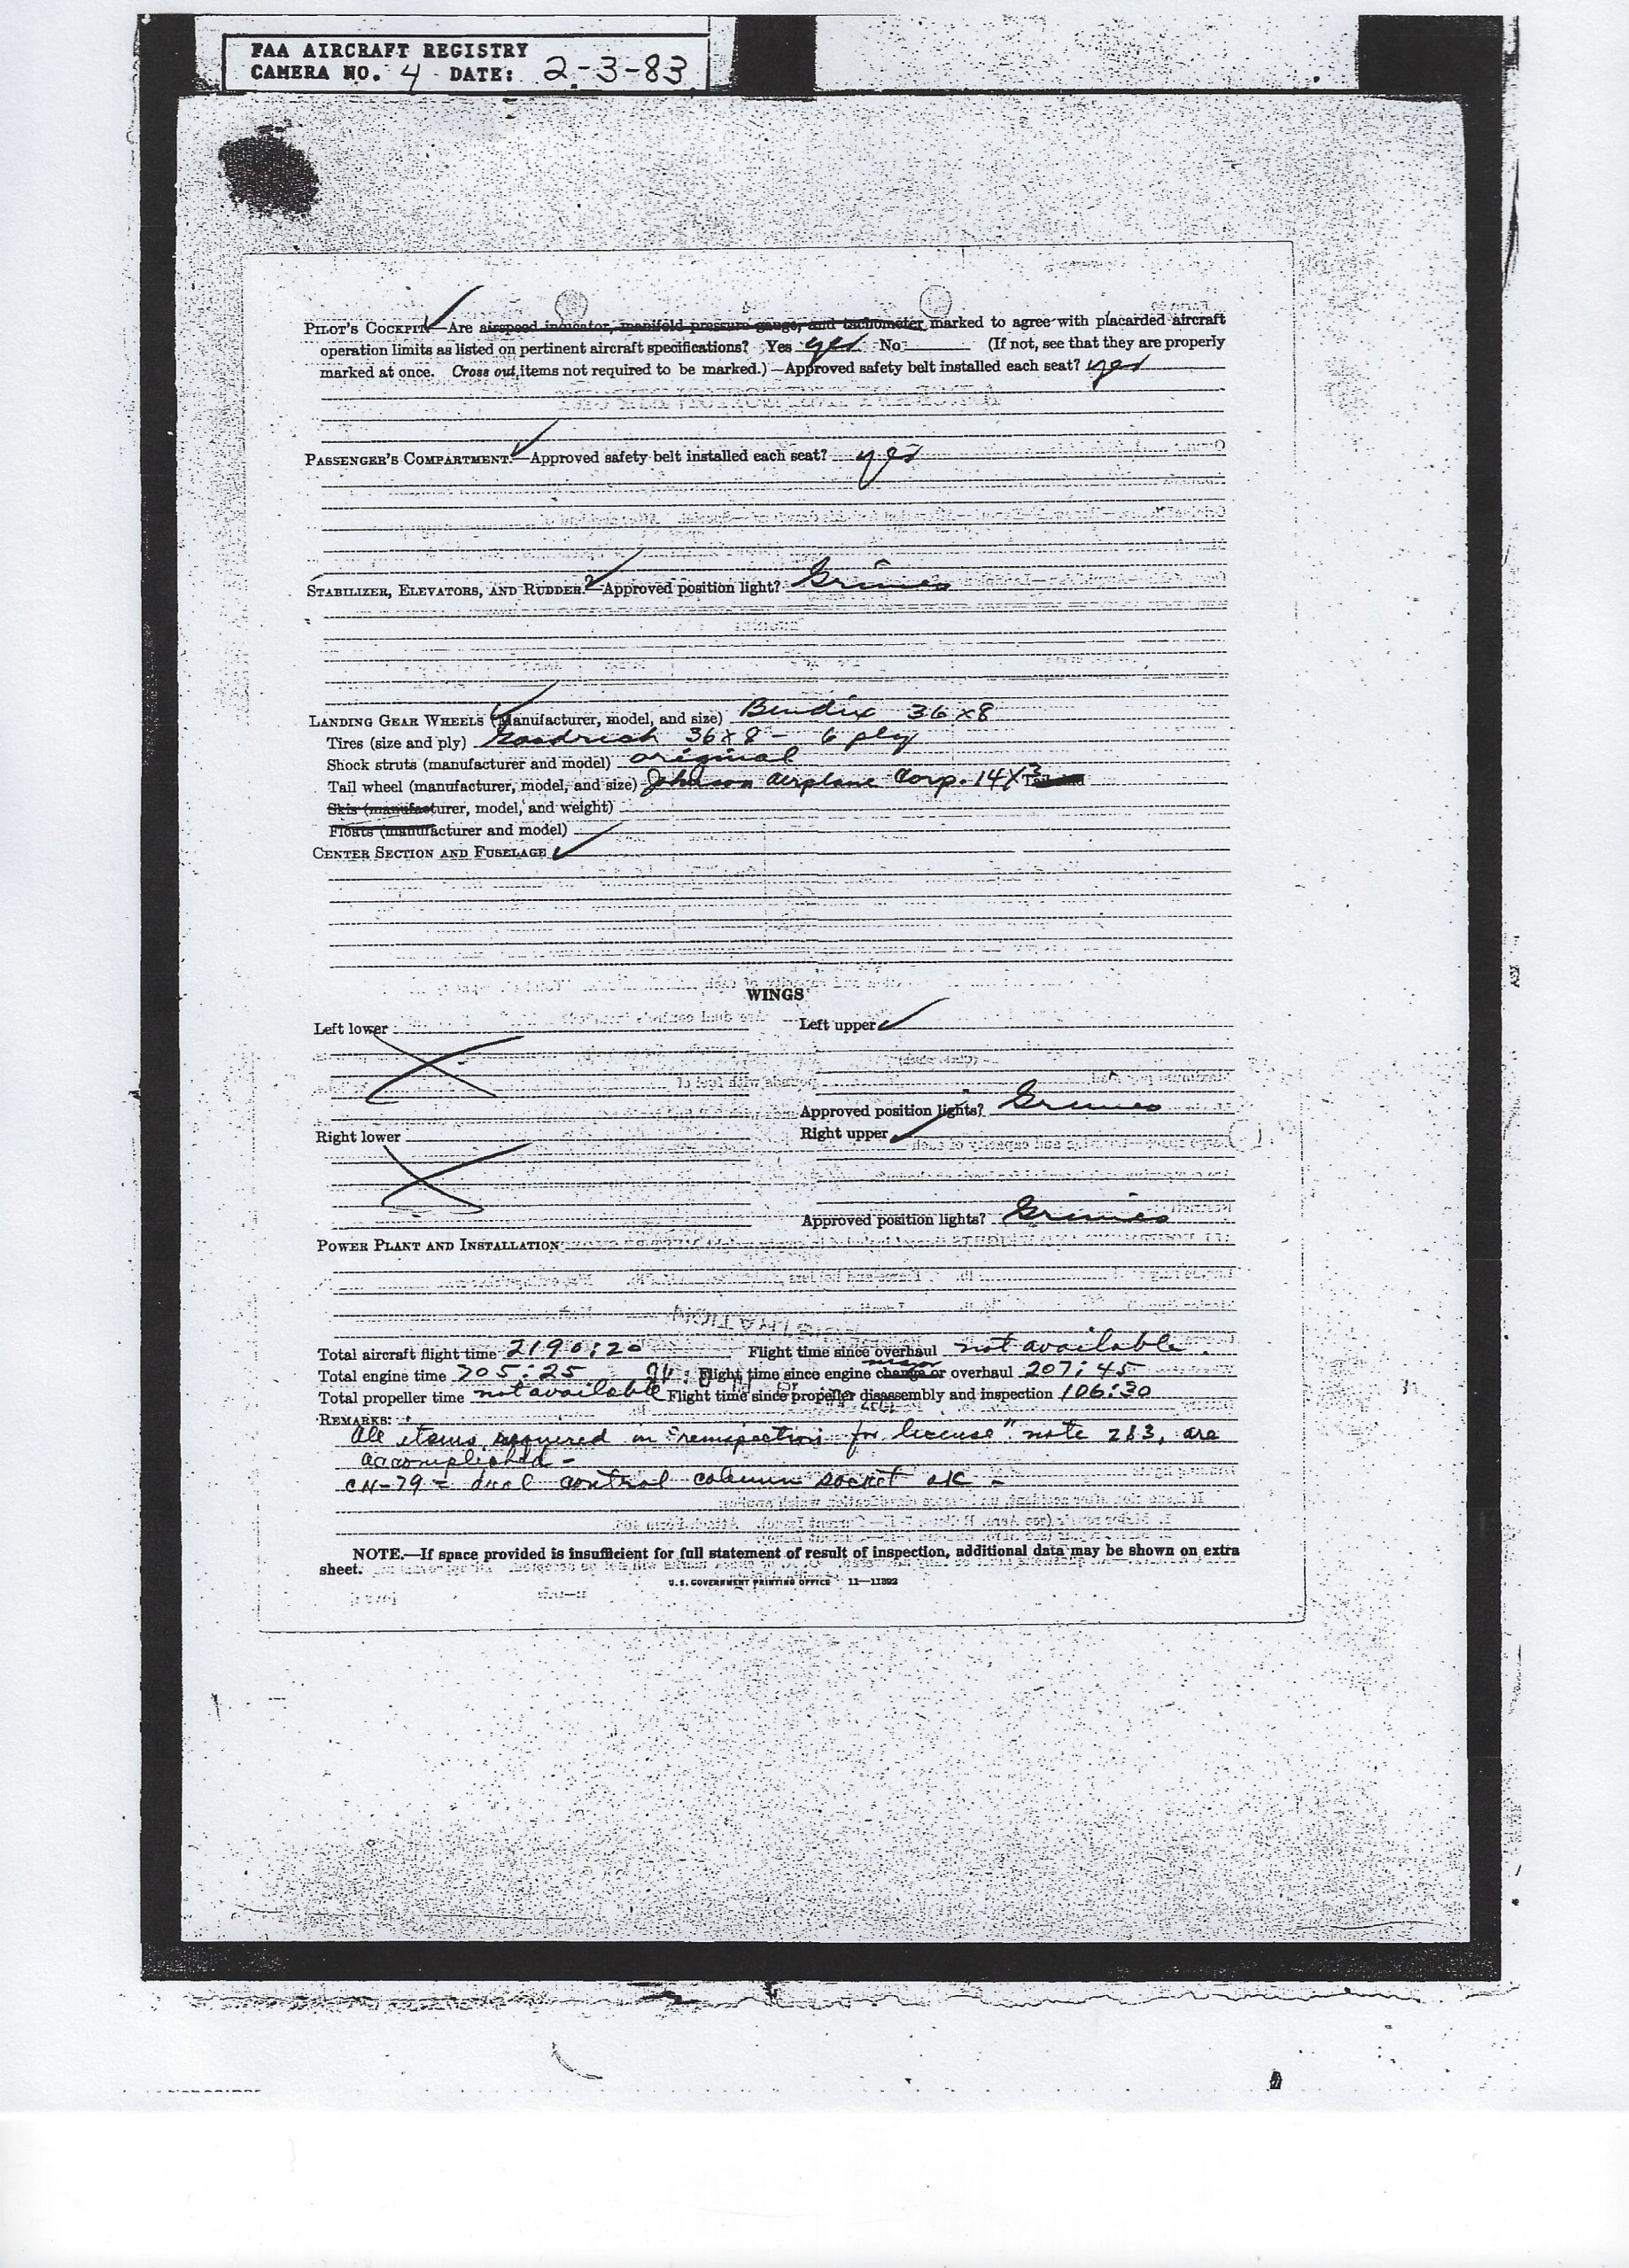 FAA AIRCRAFT REGISTRY
CAMERA NO. 4 DATE: 2-3-83
PILOT'S COCKPIT.—Are airspeed indicator, manifold pressure gauge, and tachometer marked to agree with placarded aircraft
operation limits as listed on pertinent aircraft specifications? Yes yes No (If not, see that they are properly
marked at once. Cross out items not required to be marked.)—Approved safety belt installed each seat? yes
PASSENGER'S COMPARTMENT.—Approved safety belt installed each seat? yes
STABILIZER, ELEVATORS, AND RUDDER.—Approved position light? Grimes
LANDING GEAR WHEELS (Manufacturer, model, and size) Bendix 36x8
Tires (size and ply) Goodrich 36x8 - 6 ply
Shock struts (manufacturer and model) original
Tail wheel (manufacturer, model, and size) Johnson Airplane Corp. 14x3
Skis (manufacturer, model, and weight)
Floats (manufacturer and model)
CENTER SECTION AND FUSELAGE
WINGS
Left lower Left upper
Approved position lights? Grimes
Right lower Right upper
Approved position lights? Grimes
POWER PLANT AND INSTALLATION
Total aircraft flight time 2190:20 Flight time since overhaul not available.
Total engine time 705:25 Flight time since engine change or major overhaul 207:45
Total propeller time not available Flight time since propeller disassembly and inspection 106:30
REMARKS:
All items required in "reinspection for license" note 283, are
accomplished -
CN-79 = dual control column socket OK -
NOTE.—If space provided is insufficient for full statement of result of inspection, additional data may be shown on extra
sheet.
U. S. GOVERNMENT PRINTING OFFICE 11—11392